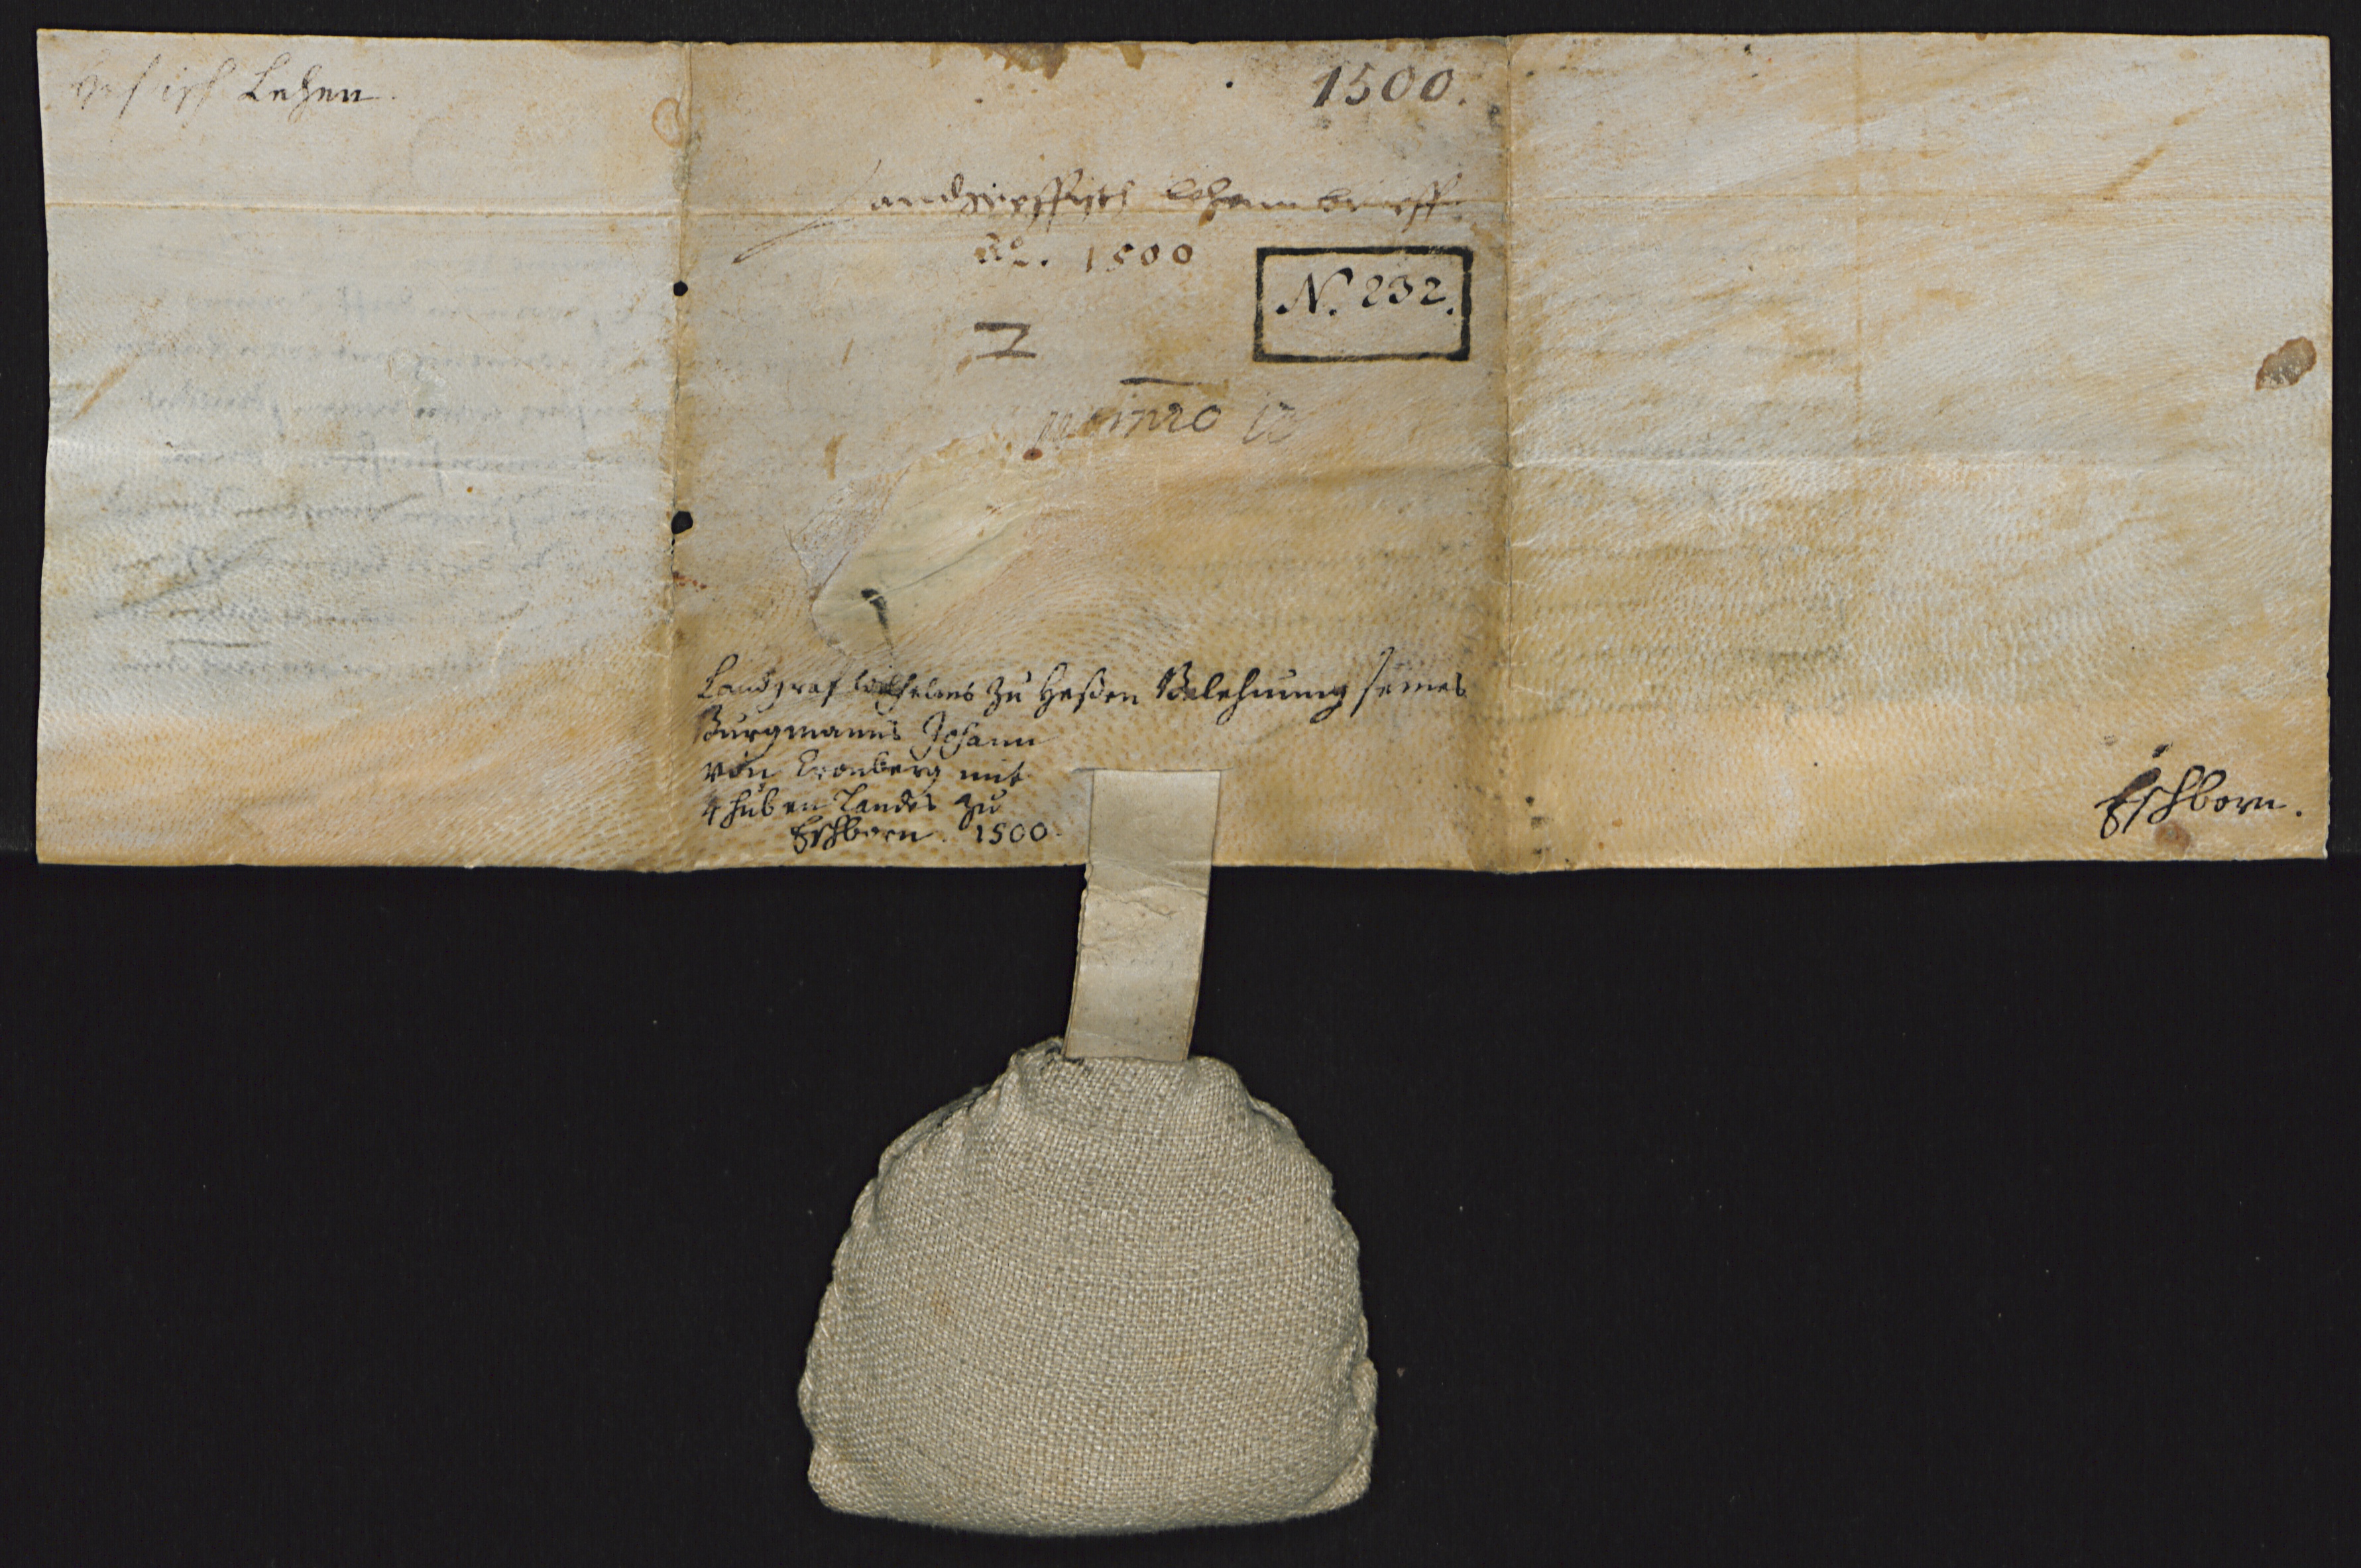 Lehen.
1500.
Landgreffisch lehenn brieff
Ao. 1500
N. 232.
I
numro
Landgraf Wilhelms zu Heßen Belehnung seines
Burgmanns Johann
von Cronberg mit
4 huben Landes zu
Eschborn. 1500.
Eschborn.